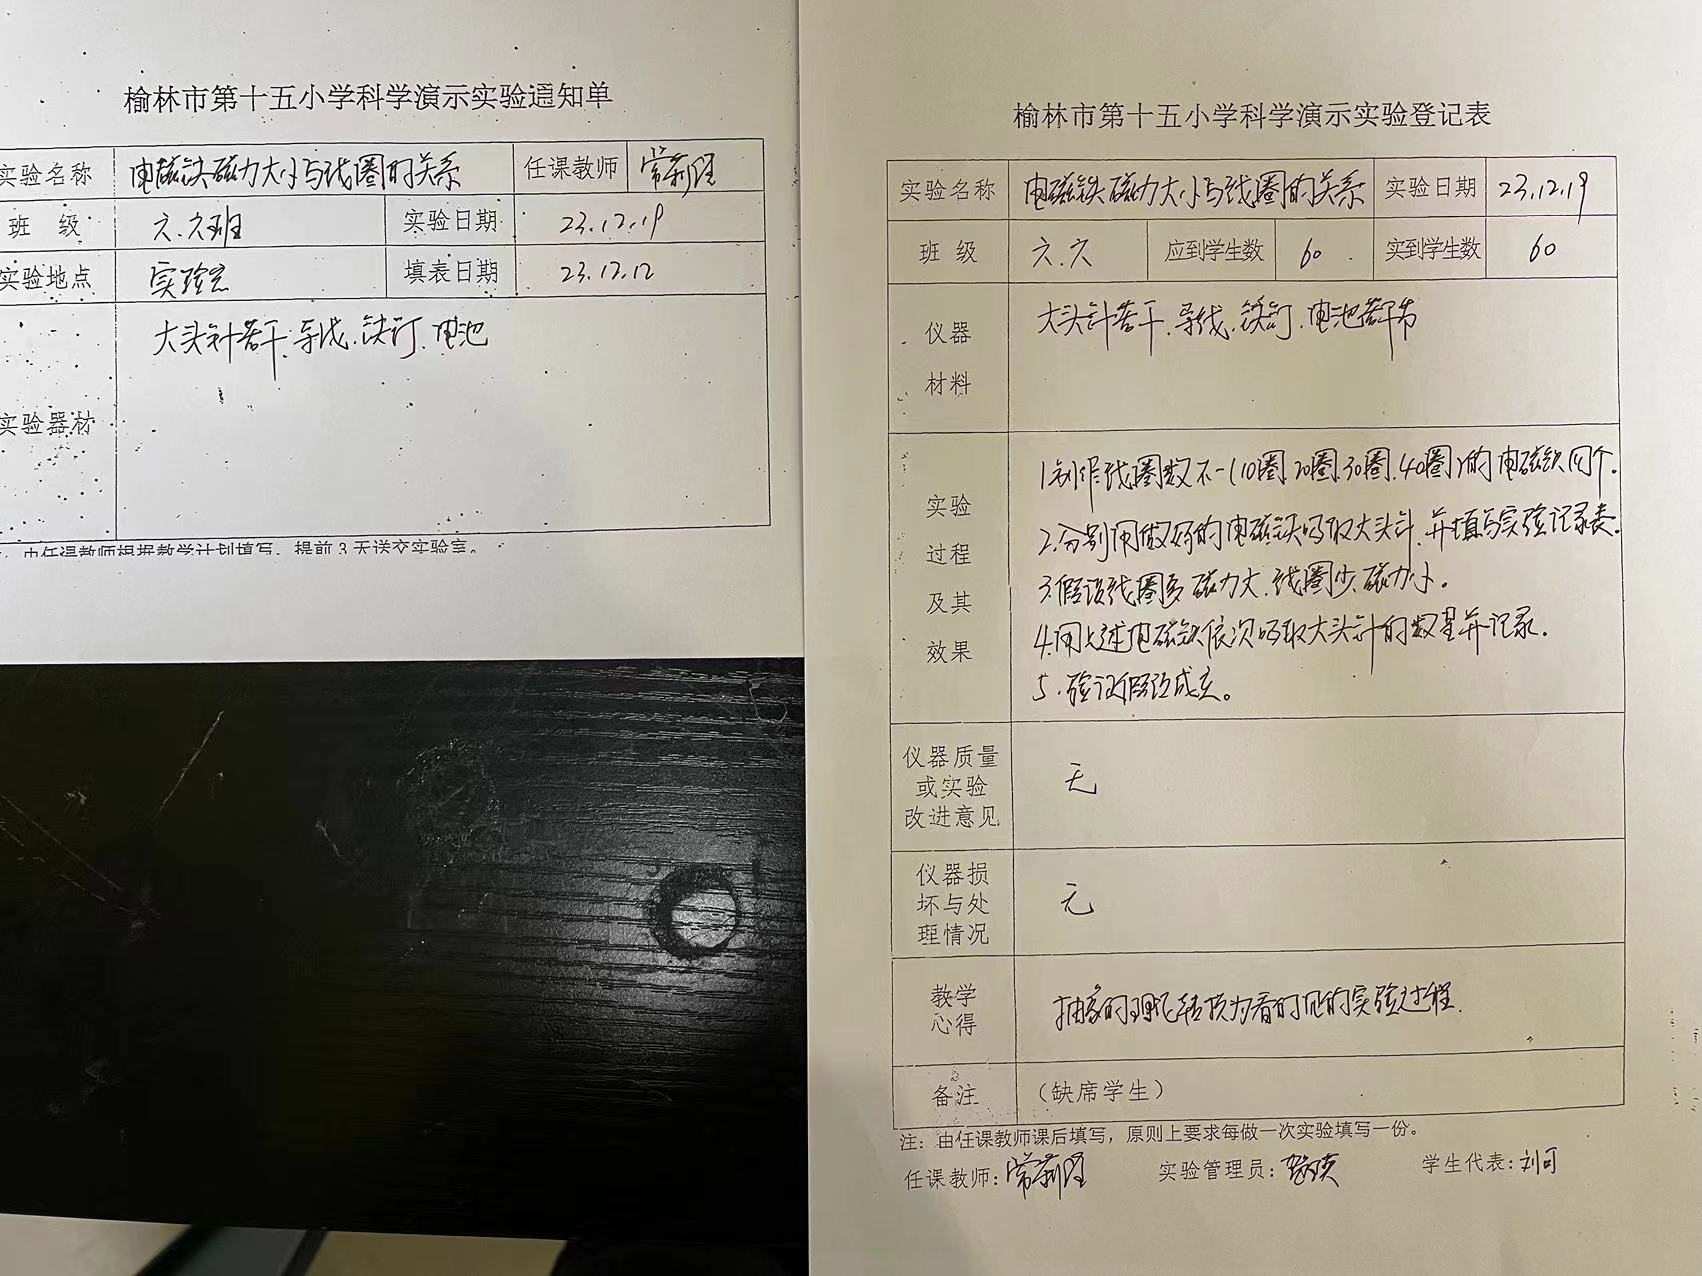 榆林市第十五小学科学演示实验通知单
实验名称 电磁铁磁力大小与线圈的关系 任课教师 常莉
班 级 六.六班 实验日期 23.12.19
实验地点 实验室 填表日期 23.12.12
大头针若干、导线、铁钉、电池
实验器材
由任课教师根据教学计划填写，提前3天送交实验室。
榆林市第十五小学科学演示实验登记表
实验名称 电磁铁磁力大小与线圈的关系 实验日期 23.12.19
班 级 六.六 应到学生数 60 实到学生数 60
仪器
材料
大头针若干、导线、铁钉、电池若干节
实验
过程
及其
效果
1.制作线圈数不一(10圈.20圈.30圈.40圈)的电磁铁四个.
2.分别用做好的电磁铁吸取大头针.并填写实验记录表.
3.假设线圈多磁力大.线圈少.磁力小。
4.用上述电磁铁依次吸取大头针的数量并记录.
5.验证假设成立。
仪器质量
或实验
改进意见
无
仪器损
坏与处
理情况
无
教学
心得
抽象的理论转换为看的见的实验过程.
备注 （缺席学生）
注：由任课教师课后填写，原则上要求每做一次实验填写一份。
任课教师：常莉 实验管理员： 学生代表：刘可